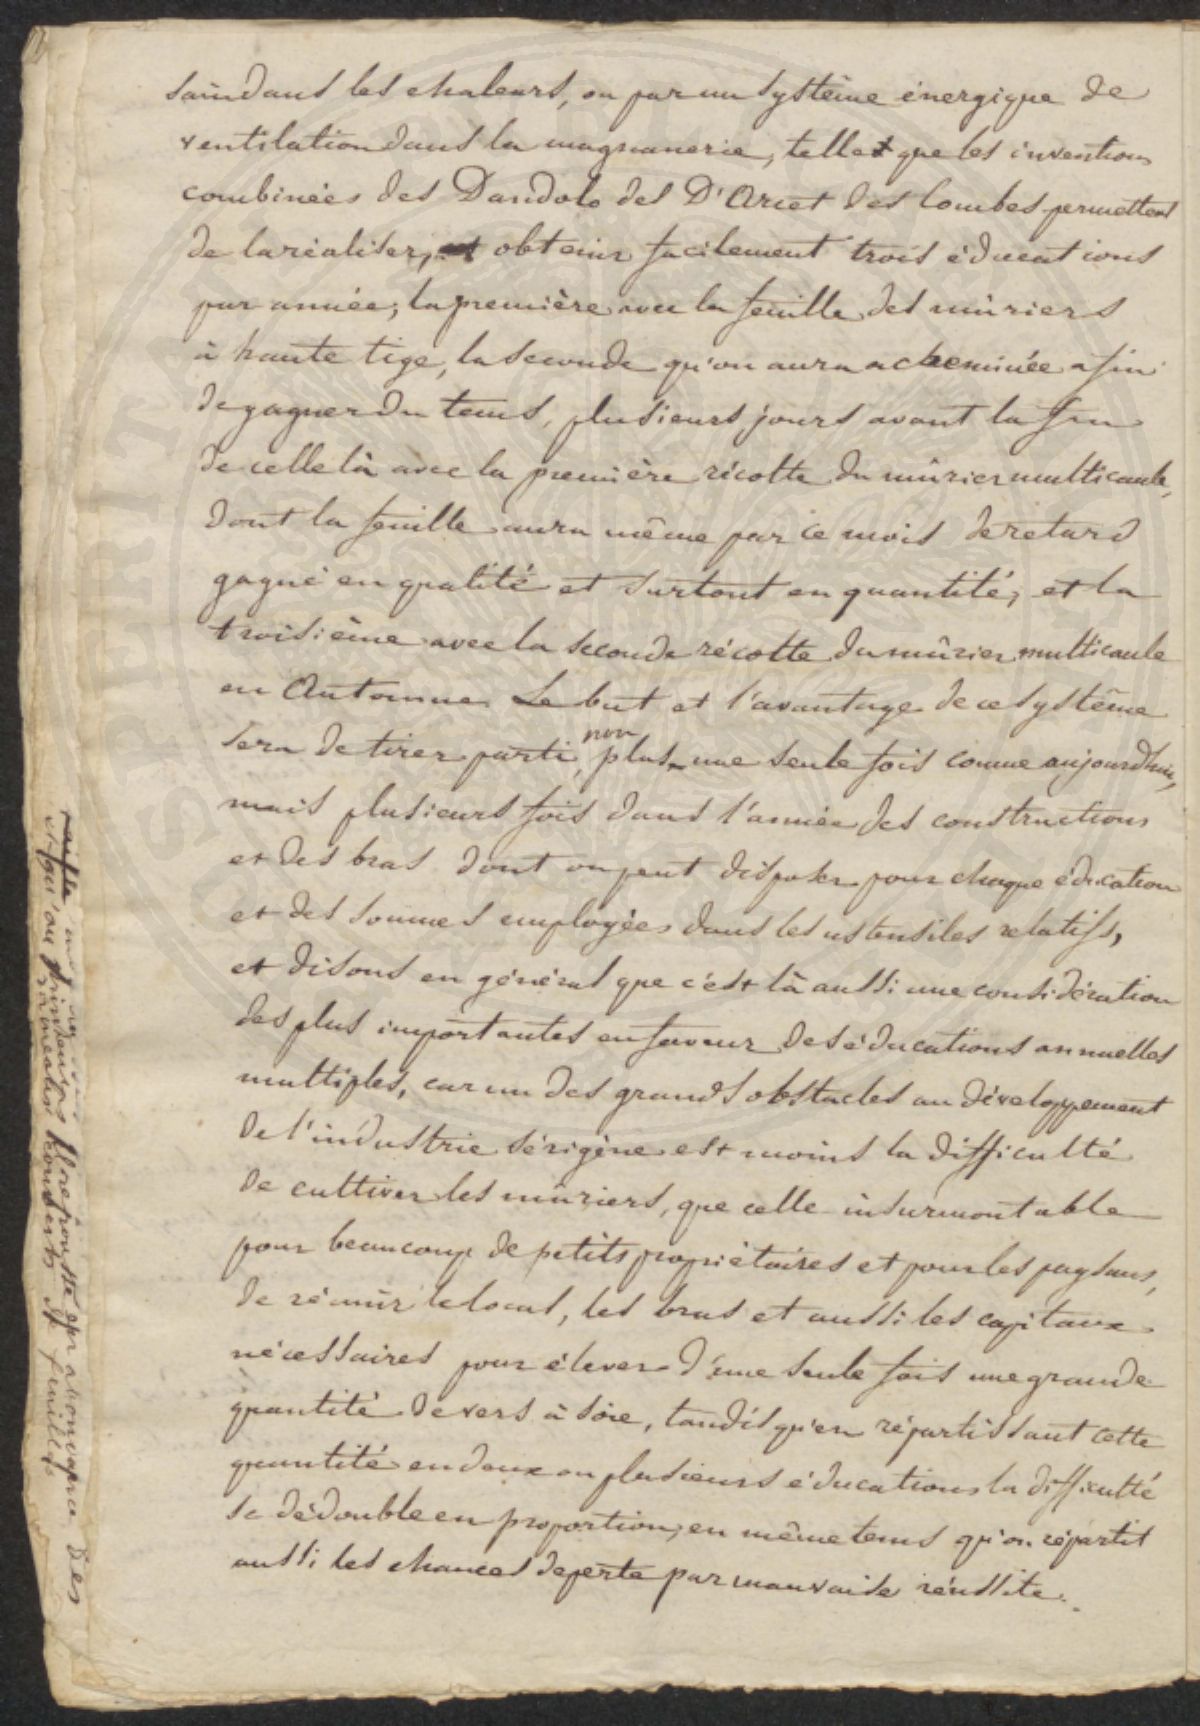 sain dans les chaleurs, ou par un système énergique de
ventilation dans la magnanerie, telle que les inventions
combinées des Dandolo des D'Arcet des Combes permettent
de la réaliser, obtenir facilement trois éducations
par année; la première avec la feuille des mûriers
à haute tige, la seconde qu'on aura acheminée afin
de gagner du tems, plusieurs jours avant la fin
de celle là avec la première récolte du mûrier multicaule,
dont la feuille aura même par ce mois de retard
gagné en qualité et surtout en quantité; et la
troisième avec la seconde récolte du mûrier multicaule
en Automne. Le but et l'avantage de ce système
sera de tirer parti, non plus une seule fois comme aujourd'hui,
mais plusieurs fois dans l'année des constructions
et des bras dont on peut disposer pour chaque éducation
et des sommes employées dans les ustensiles relatifs,
et disons en général que c'est là aussi une considération
des plus importantes en faveur des éducations annuelles
multiples, car un des grands obstacles au développement
de l'industrie sérigène est moins la difficulté
de cultiver les mûriers, que celle insurmontable
pour beaucoup de petits propriétaires et pour les paysans,
de réunir le local, les bras et aussi les capitaux
nécessaires pour élever d'une seule fois une grande
quantité de vers à soie, tandis qu'en répartissant cette
quantité en deux ou plusieurs éducations la difficulté
se dédouble en proportion, en même tems qu'on répartit
aussi les chances de perte par mauvaise réussite.
qu'au printemps par abondance des
feuilles